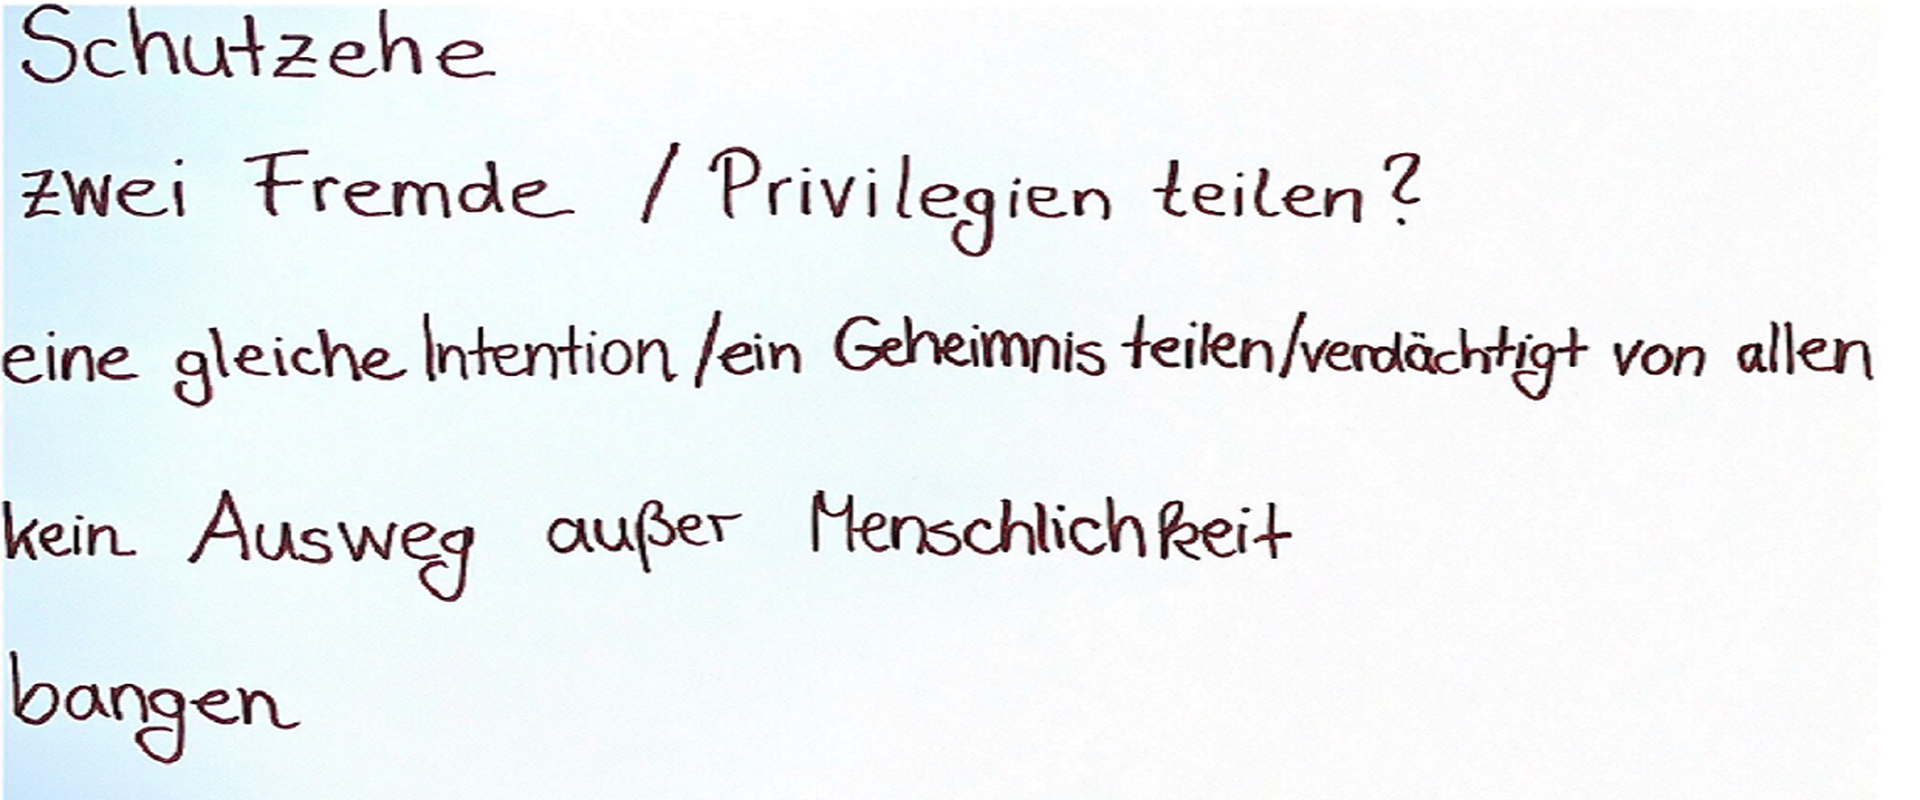 Schutzehe
zwei Fremde / Privilegien teilen?
eine gleiche Intention / ein Geheimnis teilen / verdächtigt von allen
kein Ausweg außer Menschlichkeit
bangen